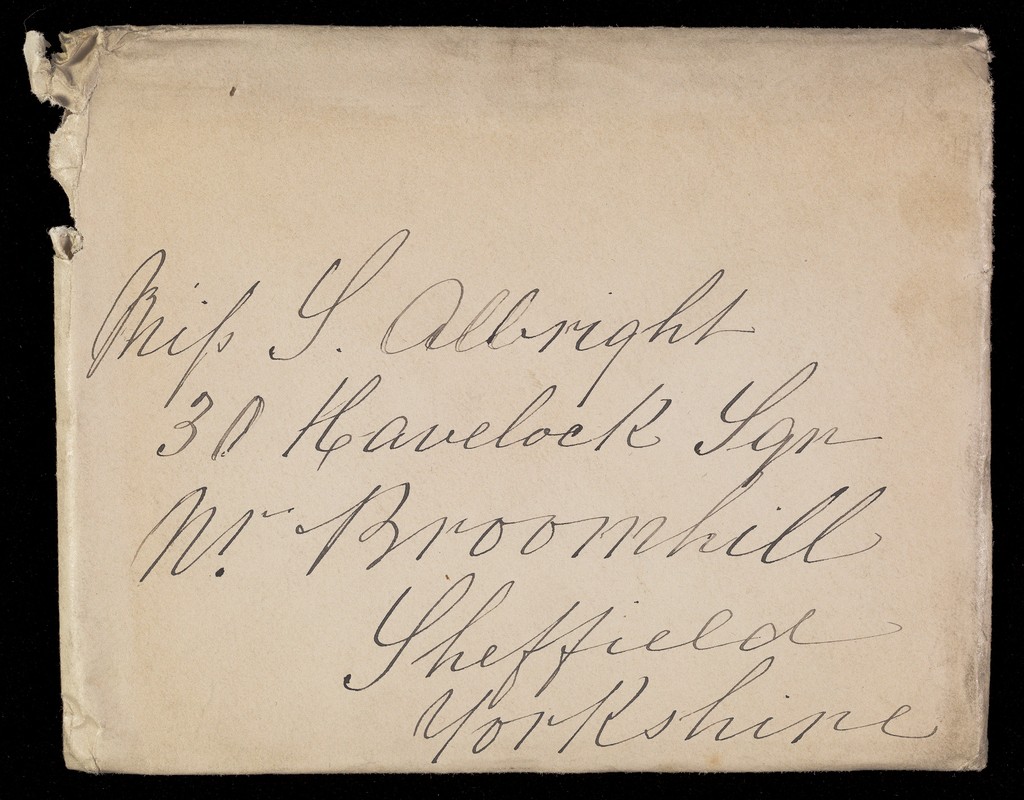 Miſs S. Albright
30 Havelock Sqr
Nr. Broomhill
Sheffield
Yorkshire